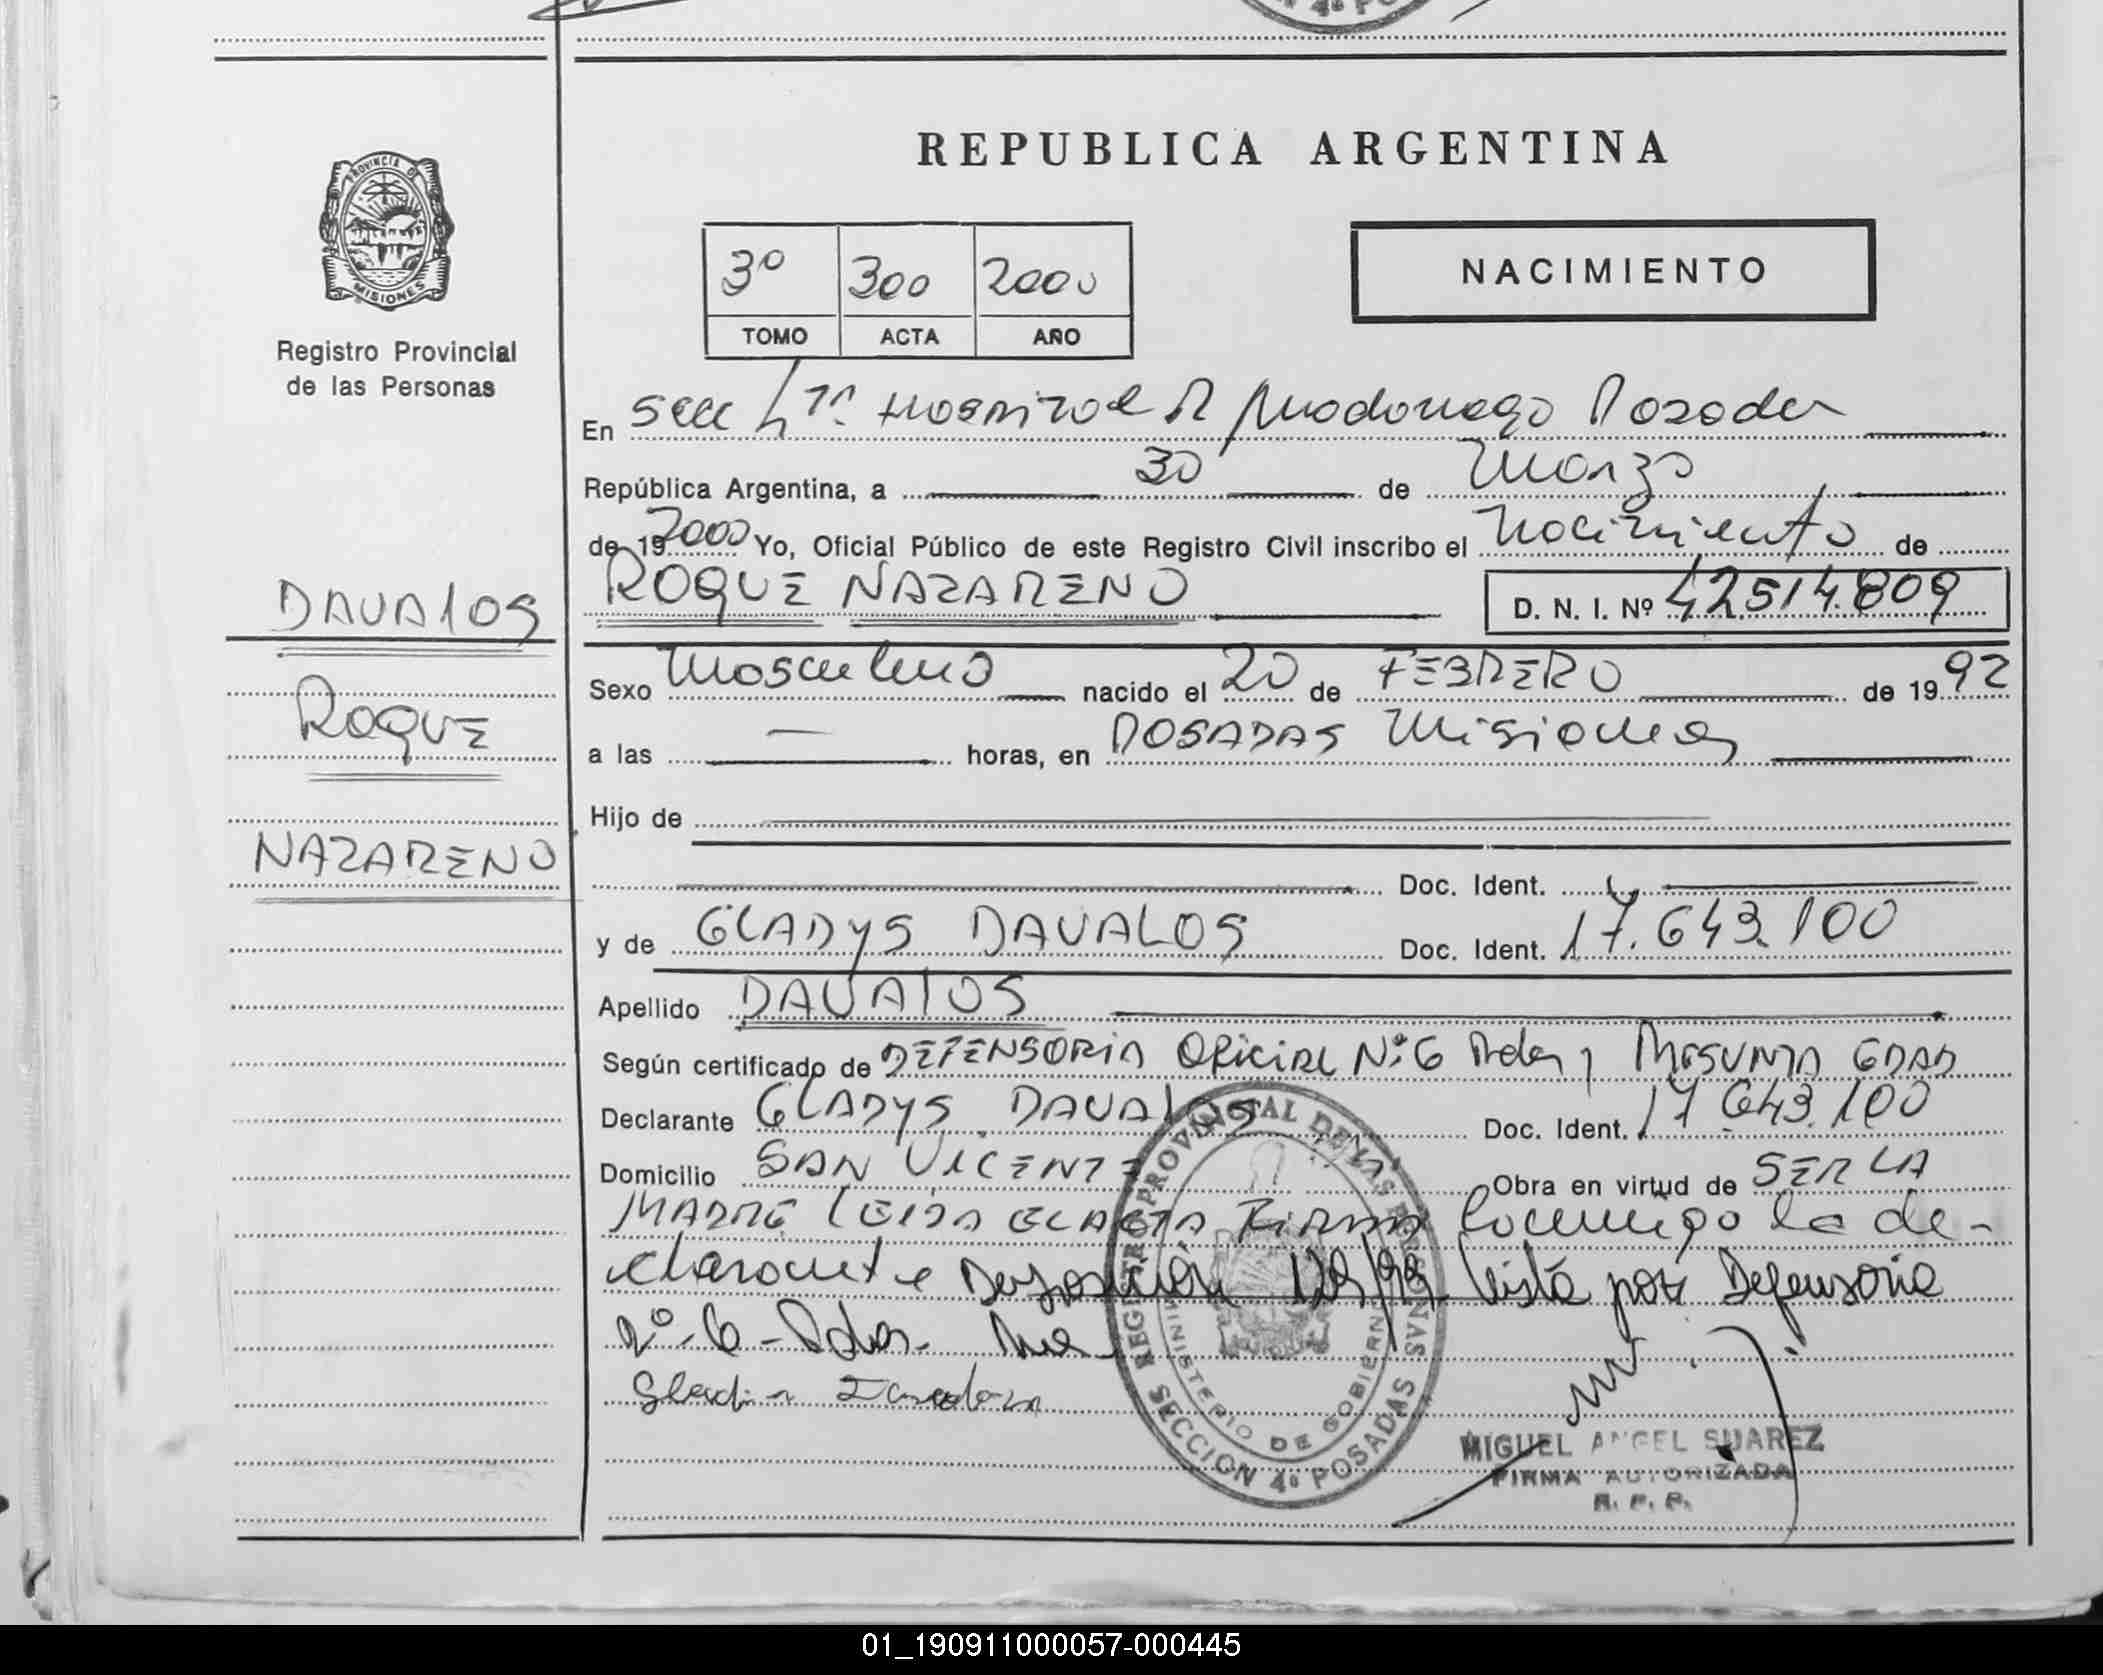 REPUBLICA ARGENTINA
PROVINCIA DE
MISIONES
Registro Provincial
de las Personas
3º 300 2000
TOMO ACTA AÑO
NACIMIENTO
En Secc 4ta Hospital R Madariaga Posadas
República Argentina, a 30 de Marzo
de 19 2000 Yo, Oficial Público de este Registro Civil inscribo el Nacimiento de
ROQUE NAZARENO D. N. I. Nº 42514.809
DAVALOS
ROQUE
NAZARENO
Sexo Masculino nacido el 20 de FEBRERO de 19 92
a las — horas, en POSADAS Misiones
Hijo de
Doc. Ident.
y de GLADYS DAVALOS Doc. Ident. 17.643.100
Apellido DAVALOS
Según certificado de DEFENSORIA OFICIAL Nº 6 Pdas y PRESUNTA EDAD
Declarante GLADYS DAVALOS Doc. Ident. 17.643.100
Domicilio SAN VICENTE Obra en virtud de SER LA
MADRE LEIDA EL ACTA FIRMA Conmigo la de-
clarante Disposición 129/99 Vista por Defensoria
nº 6 - Pdas.
REGISTRO PROVINCIAL DE LAS PERSONAS
MINISTERIO DE GOBIERNO
SECCION 4ª POSADAS
MIGUEL ANGEL SUAREZ
FIRMA AUTORIZADA
R. P. P.
01_190911000057-000445